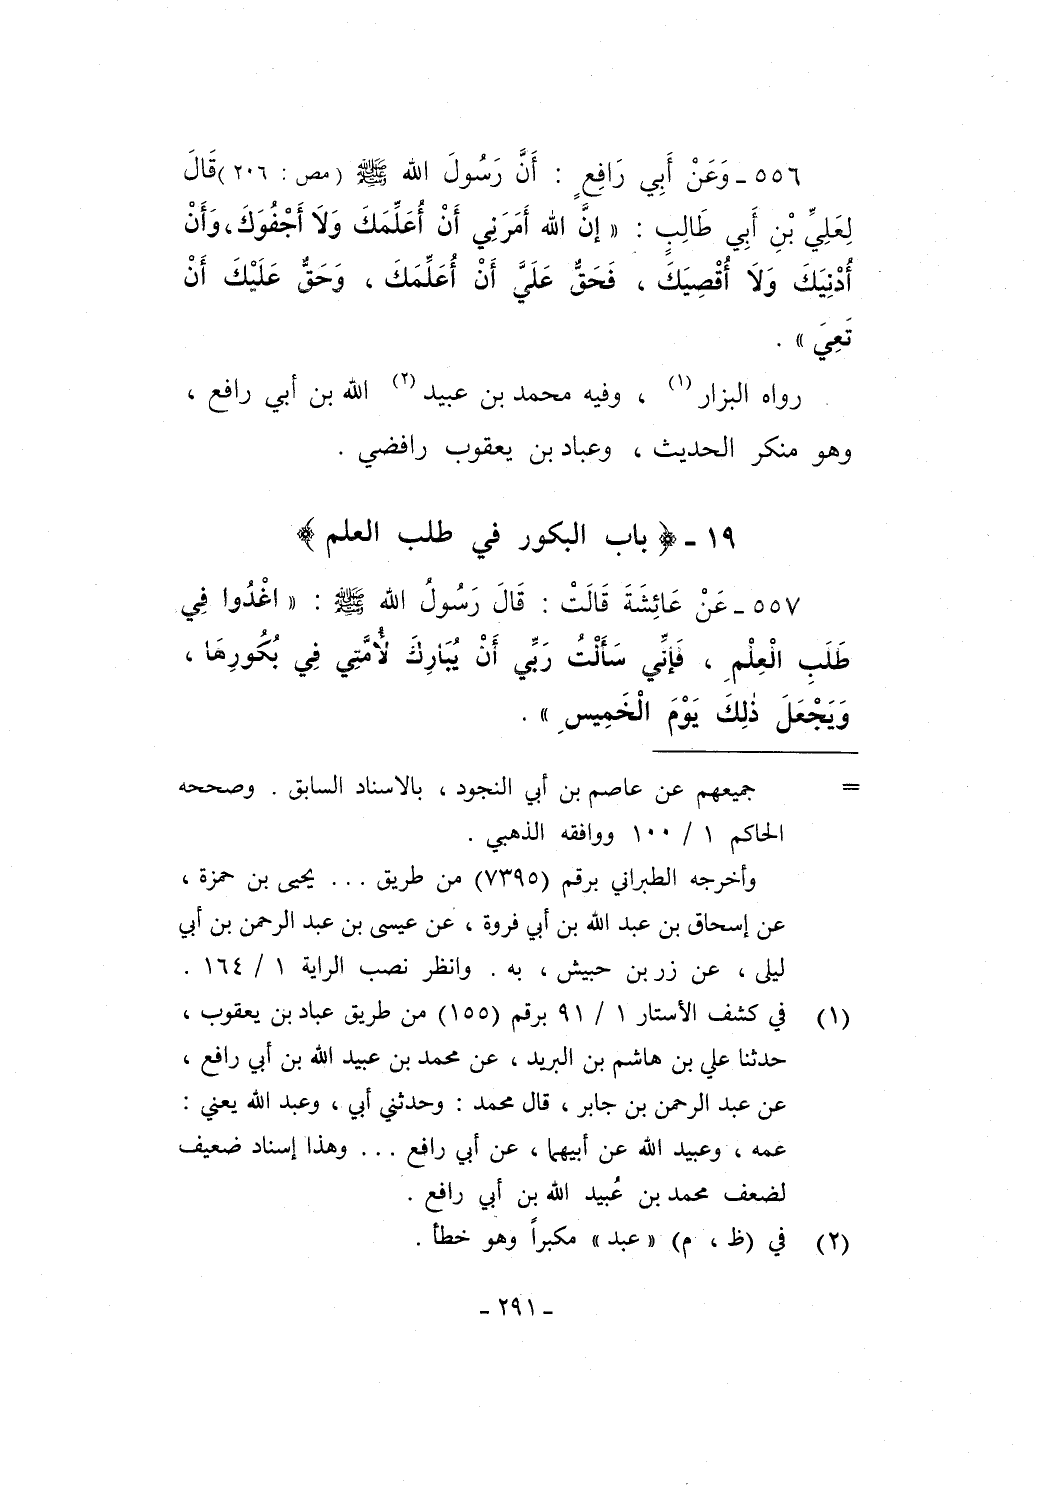 ٥٥٦ ـ وَعَنْ أَبِي رَافِعٍ : أَنَّ رَسُولَ الله ﷺ ( مص : ٢٠٦ )قَالَ
لِعَلِيِّ بْنِ أَبِي طَالِبٍ : « إنَّ الله أَمَرَنِي أَنْ أُعَلِّمَكَ وَلَا أَجْفُوَكَ، وَأَنْ
أُدْنِيَكَ وَلَا أُقْصِيَكَ ، فَحَقٌّ عَلَيَّ أَنْ أُعَلِّمَكَ ، وَحَقٌّ عَلَيْكَ أَنْ
تَعِيَ » .
رواه البزار (١) ، وفيه محمد بن عبيد (٢) الله بن أبي رافع ،
وهو منكر الحديث ، وعباد بن يعقوب رافضي .
١٩ ـ ﴿ باب البكور في طلب العلم ﴾
٥٥٧ ـ عَنْ عَائِشَةَ قَالَتْ : قَالَ رَسُولُ الله ﷺ : « اغْدُوا فِي
طَلَبِ الْعِلْمِ ، فَإنِّي سَأَلْتُ رَبِّي أَنْ يُبَارِكَ لأُمَّتِي فِي بُكُورِهَا ،
وَيَجْعَلَ ذٰلِكَ يَوْمَ الْخَمِيسِ » .
= جميعهم عن عاصم بن أبي النجود ، بالاسناد السابق . وصححه
الحاكم ١ / ١٠٠ ووافقه الذهبي .
وأخرجه الطبراني برقم (٧٣٩٥) من طريق ... يحيى بن حمزة ،
عن إسحاق بن عبد الله بن أبي فروة ، عن عيسى بن عبد الرحمن بن أبي
ليلى ، عن زر بن حبيش ، به . وانظر نصب الراية ١ / ١٦٤ .
(١) في كشف الأستار ١ / ٩١ برقم (١٥٥) من طريق عباد بن يعقوب ،
حدثنا علي بن هاشم بن البريد ، عن محمد بن عبيد الله بن أبي رافع ،
عن عبد الرحمن بن جابر ، قال محمد : وحدثني أبي ، وعبد الله يعني :
عمه ، وعبيد الله عن أبيهما ، عن أبي رافع ... وهذا إسناد ضعيف
لضعف محمد بن عُبيد الله بن أبي رافع .
(٢) في (ظ ، م) « عبد » مكبراً وهو خطأ .
ـ ٢٩١ ـ